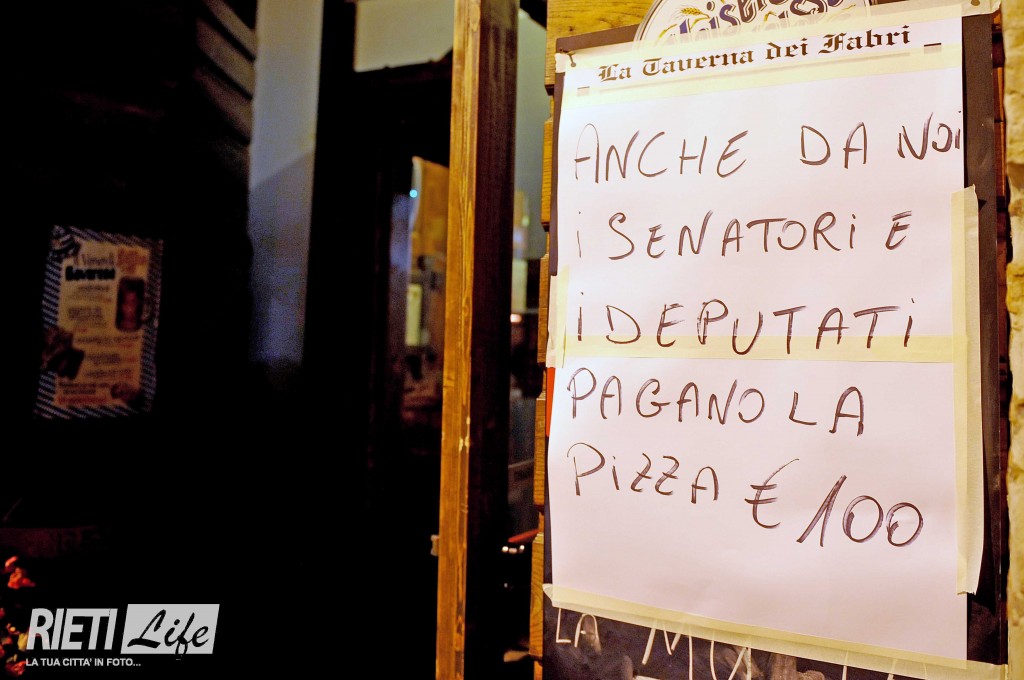 La Taverna dei Fabri
ANCHE DA NOi
i SENATORi E
i DEPUTATi
PAGANO LA
PiZZA € 100
LA
RIETI Life
LA TUA CITTA' IN FOTO...